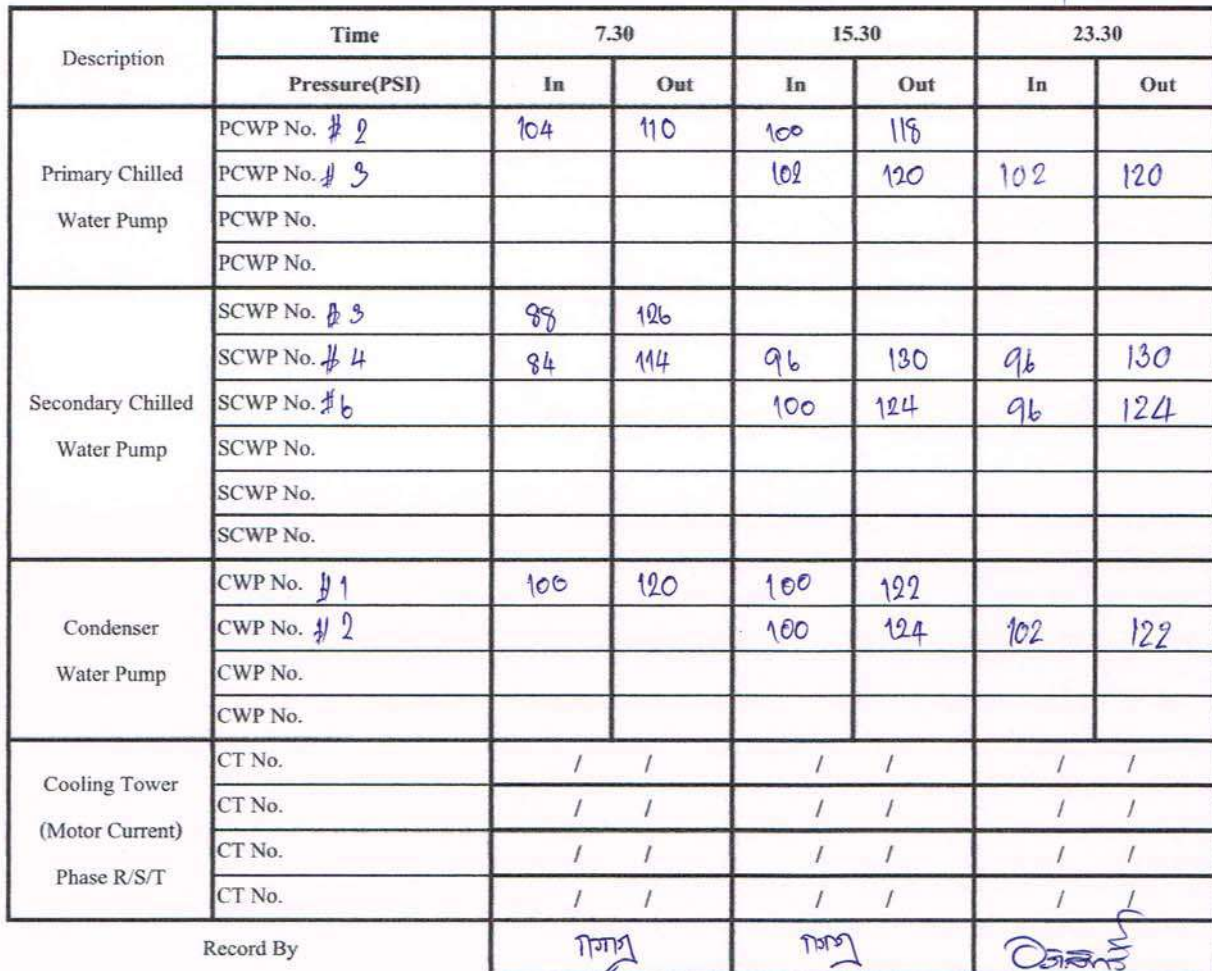 Description Time 7.30 15.30 23.30
Pressure(PSI) In Out In Out In Out
Primary Chilled Water Pump
PCWP No. # 2 104 110 100 118
PCWP No. # 3 102 120 102 120
PCWP No.
PCWP No.
Secondary Chilled Water Pump
SCWP No. # 3 88 126
SCWP No. # 4 84 114 96 130 96 130
SCWP No. # 6 100 124 96 124
SCWP No.
SCWP No.
SCWP No.
Condenser Water Pump
CWP No. # 1 100 120 100 122
CWP No. # 2 100 124 102 122
CWP No.
CWP No.
Cooling Tower (Motor Current) Phase R/S/T
CT No. / / / / / /
CT No. / / / / / /
CT No. / / / / / /
CT No. / / / / / /
Record By